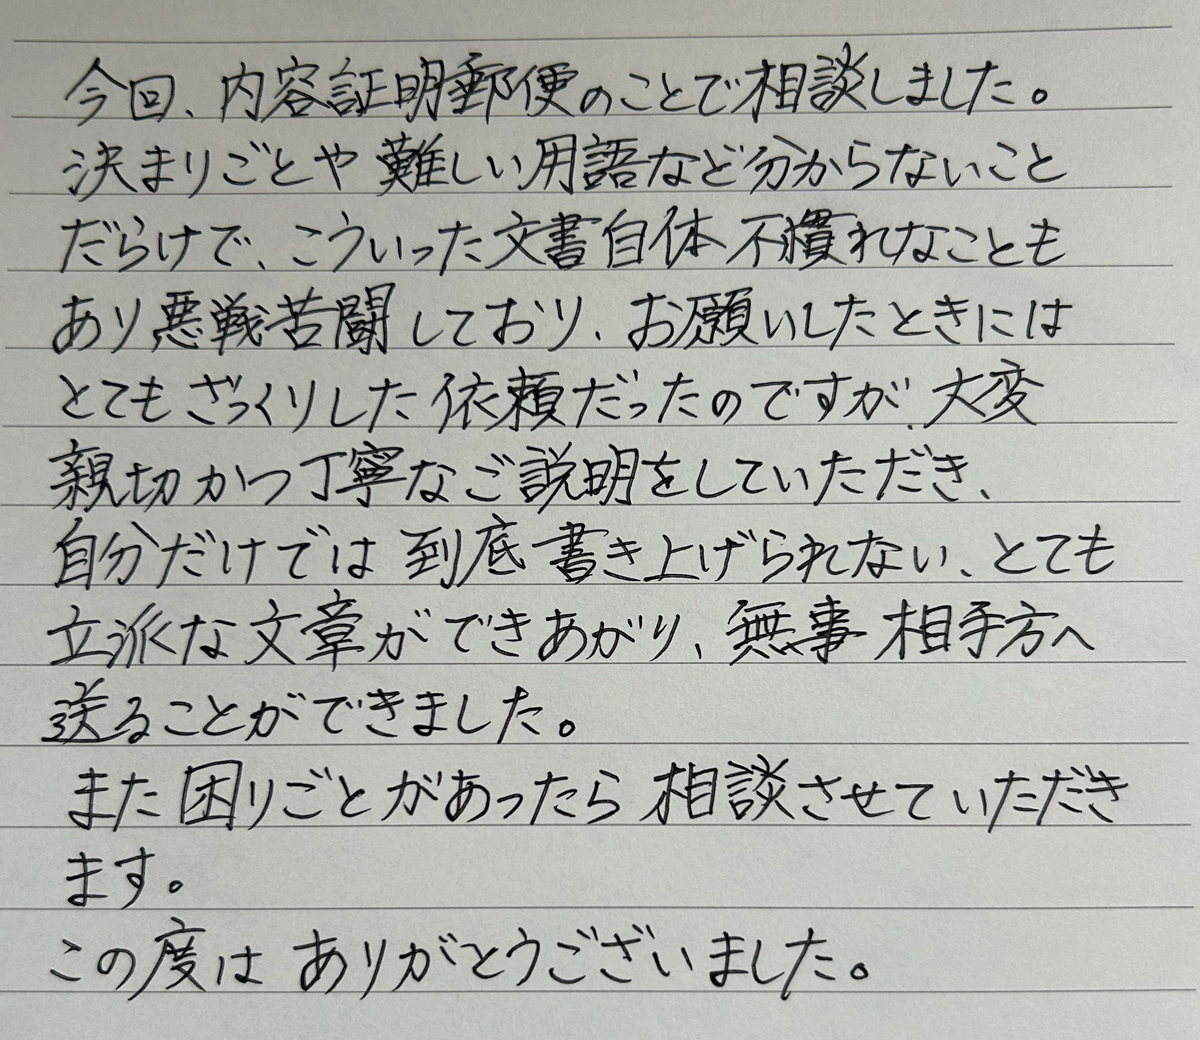 今回、内容証明郵便のことで相談しました。
決まりごとや難しい用語など分からないこと
だらけで、こういった文書自体不慣れなことも
あり悪戦苦闘しており、お願いしたときには
とてもざっくりした依頼だったのですが、大変
親切かつ丁寧なご説明をしていただき、
自分だけでは到底書き上げられない、とても
立派な文章ができあがり、無事相手方へ
送ることができました。
また困りごとがあったら相談させていただき
ます。
この度はありがとうございました。